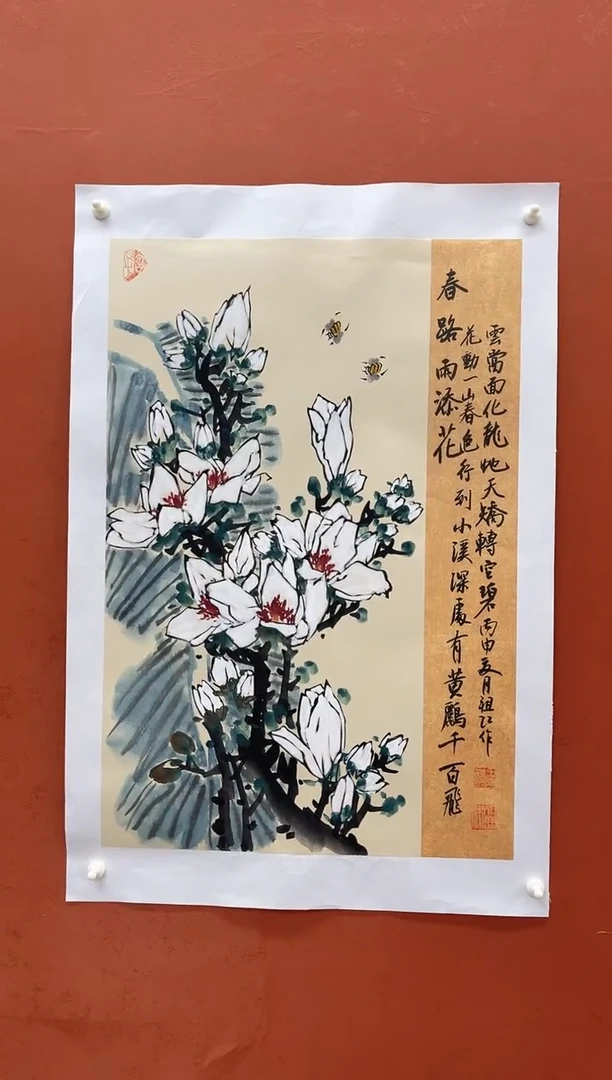 春路雨添花
花動一山春色行到小溪深處有黃鸝千百飛
雲當面化龍虵夭矯轉空碧丙申夏月祖江作